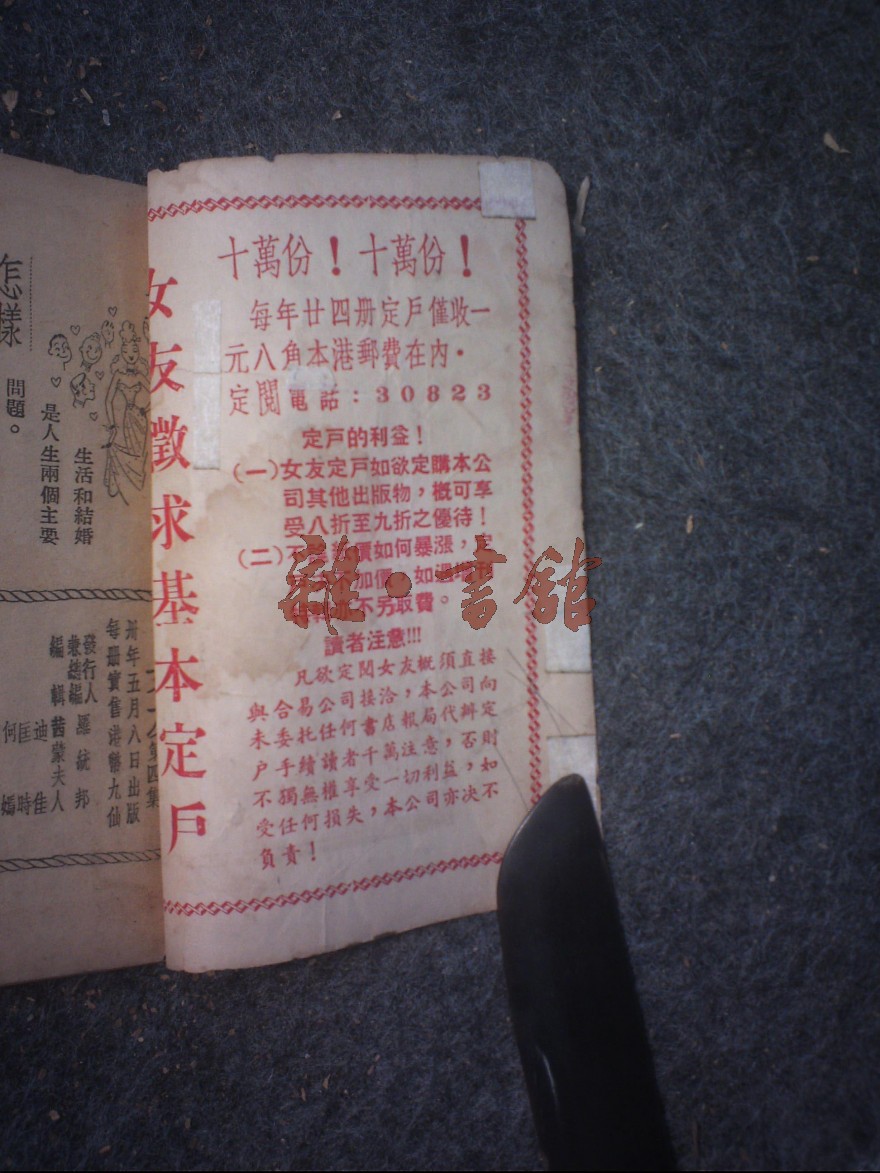 女友徵求基本定戶
十萬份！十萬份！
每年廿四册定戶僅收一
元八角本港郵費在內·
定閱電話：30823
定戶的利益！
(一)女友定戶如欲定購本公
司其他出版物，概可享
受八折至九折之優待！
(二)不 價如何暴漲，定
不加價。如遇增
不另取費。
讀者注意!!!
凡欲定閱女友概須直接
與合易公司接洽，本公司向
未委托任何書店報局代辦定
戶手續讀者千萬注意，否則
不獨無權享受一切利益，如
受任何損失，本公司亦决不
負責！
雜·書館
怎樣
生活和結婚
是人生兩個主要
問題。
第四集
卅年五月八日出版
每册實售港幣九仙
發行人
兼總編 羅斌邦
編輯 茜蒙夫人
迪佳
匡時
何嫣